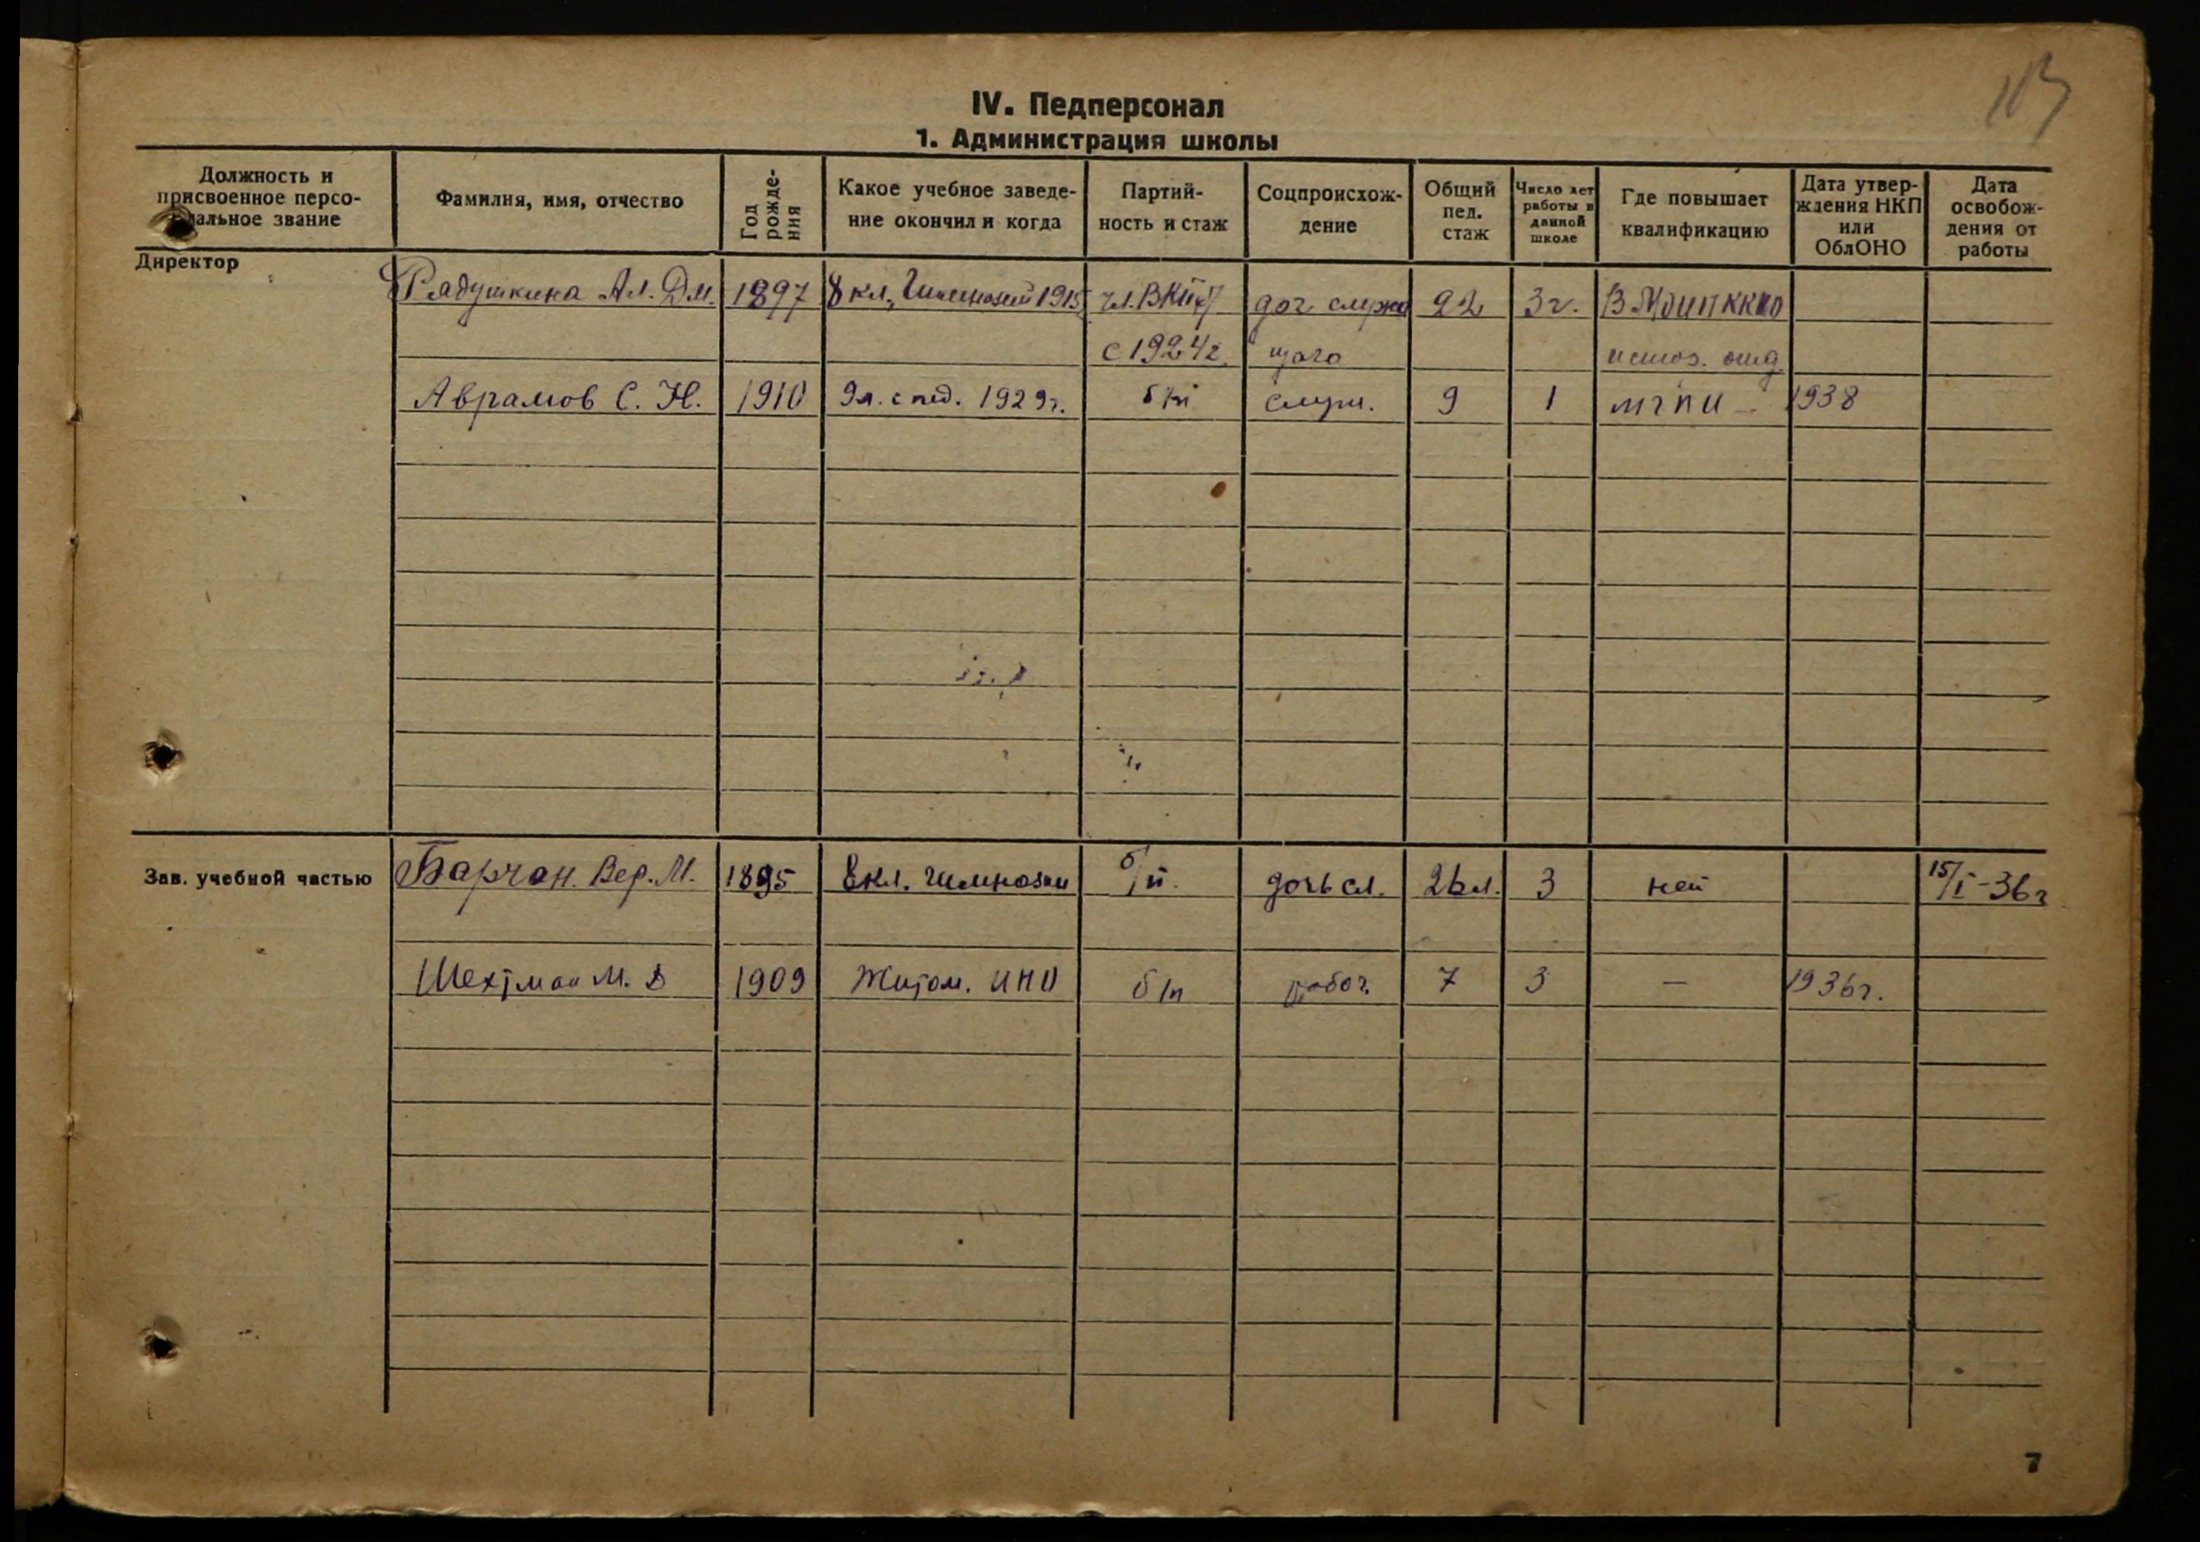 IV. Педперсонал
1. Администрация школы
Должность и присвоенное персональное звание
Фамилия, имя, отчество
Год рождения
Какое учебное заведение окончил и когда
Партийность и стаж
Соцпроисхождение
Общий пед. стаж
Число лет работы в данной школе
Где повышает квалификацию
Дата утверждения НКП или ОблОНО
Дата освобождения от работы
Директор
Рядушкина Ал. Дм. 1897 8 кл. Гимназии 1915 чл. ВКП(б) доч. служа 22 3 г. В
с 1924 г. щаго отд.
Аврамов С. Н. 1910 9 л. с пед. 1929 г. б/п служ. 9 1 МГПИ — 1938
Зав. учебной частью
Барчан Вер. М. 1895 8 кл. гимназии б/п. дочь сл. 26 л. 3 нет 15/I-36 г
Шехтман М. Д 1909 Житом. ИНО б/п рабоч. 7 3 — 1936 г.
7